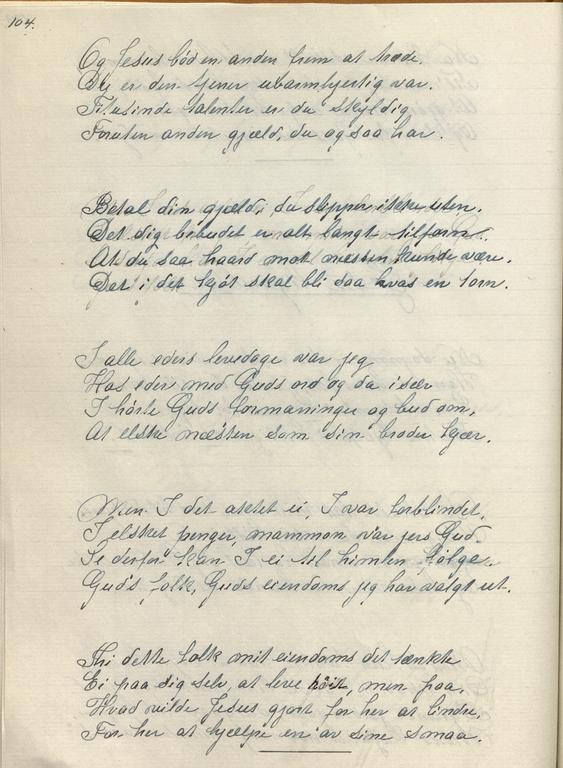 104.
Og Jesus bød en anden frem at træde.
Du er den tjener ubarmhjertig var.
Titusinde talenter er du skyldig
Foruten anden gjæld, du og saa har.
Betal din gjæld, du slipper ikke uten.
Det dig bebudet er alt langt tilforn.
At du saa haard mot næsten kunde være.
Det i det kjøt skal bli saa hvas en torn.
I alle eders levedage var jeg
Hos eder med Guds ord og da især
I hørte Guds formaninger og bud om,
At elske næsten som sin broder kjær.
Men I det aktet ei, I var forblindet,
I elsket penger, mammon var jers Gud.
Se derfor kan I ei til himlen følge.
Guds folk, Guds eiendoms jeg har valgt ut.
Thi dette folk mit eiendoms det tænkte
Ei paa dig selv, at leve høit, men paa,
Hvad vilde Jesus gjort for her at lindre,
For her at hjælpe en av sine smaa.